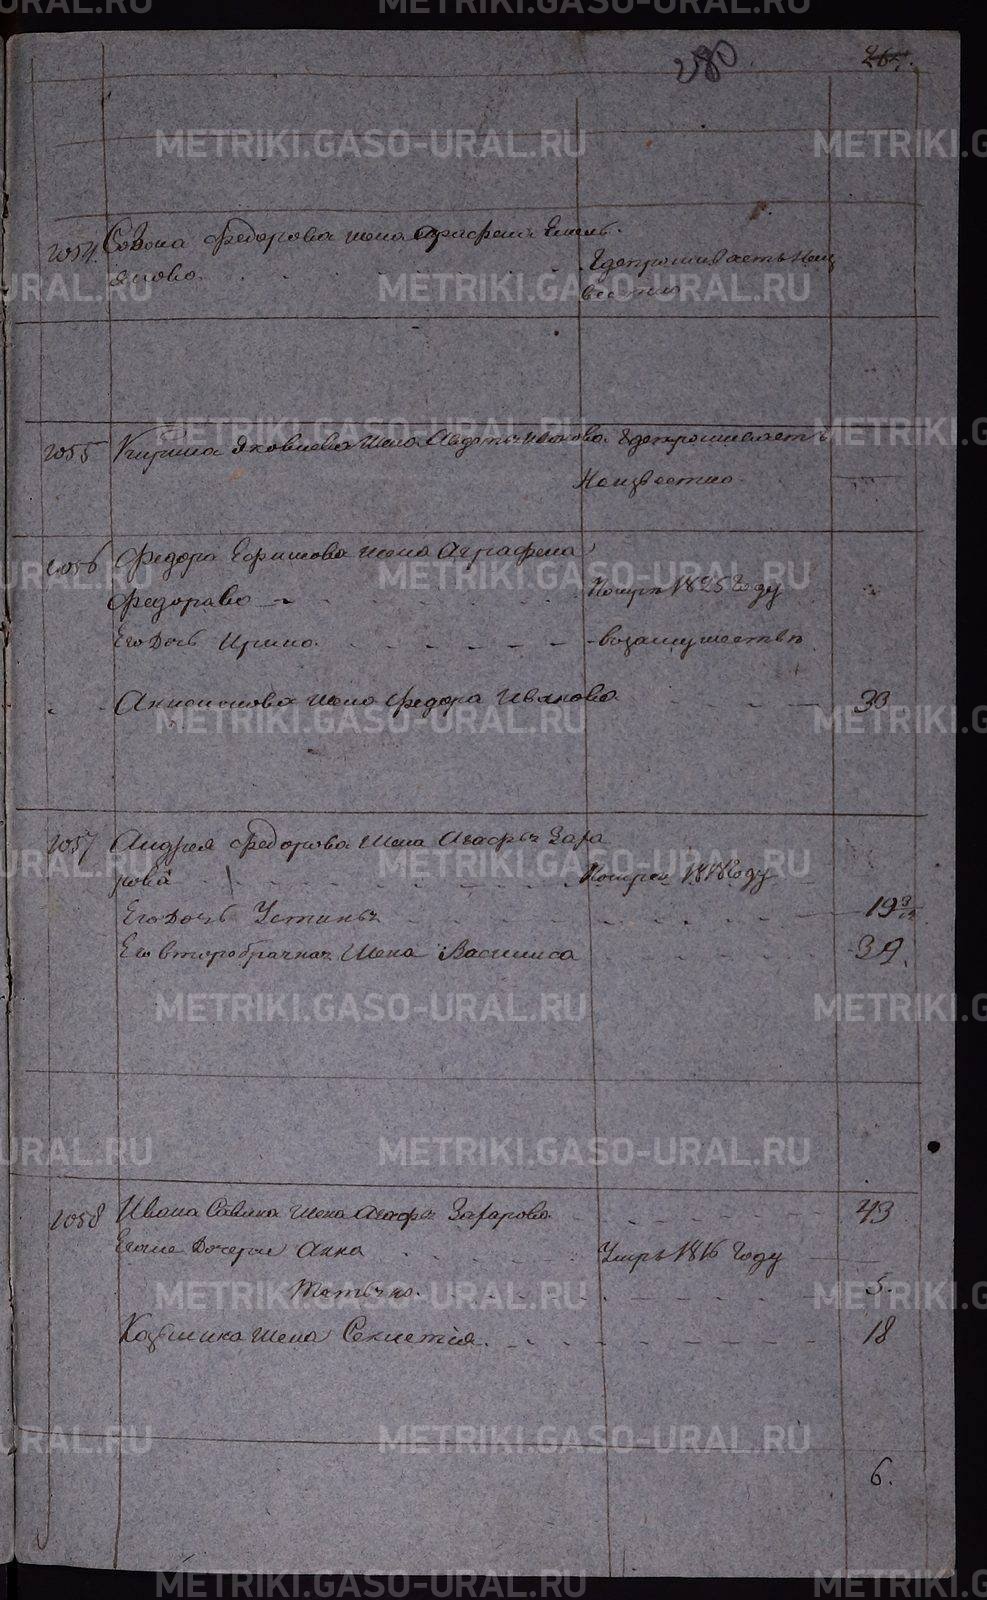 280
267.
1054. Созона Федорова жена Аграфена Емель-
янова
Гдепроживаетъ Неиз
вестно
1055 Кирила Яковлева жена Авдотья Иванова Гдепроживаетъ
Неизвестно
1056 Федора Ефимова жена Аграфена
Федорова Померла 1825 Году
Его Дочь Ирина взамужествѣ
жена Федора Иванова 30
1057 Андрея Федорова жена Агафья Заха
рова Померла 1818 Году
Его Дочь Устинья 19
Его второбрачная жена Василиса 39.
1058 Ивана Савина жена Агафья Захарова 43
Дочери Анна Умрѣ 1816 Году
Татьяна 5.
Козьмина жена Секлетія 18
6.
METRIKI.GASO-URAL.RU